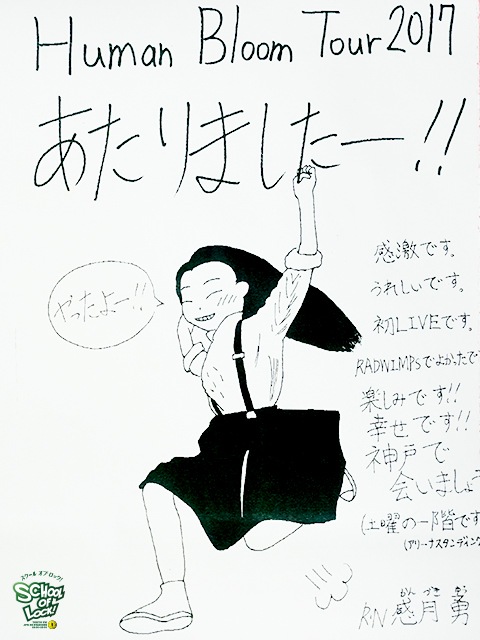 Human Bloom Tour 2017
あたりましたー!!
やったよー!!
感激です。
うれしいです。
初LIVEです。
RADWIMPSでよかったで
楽しみです!!
幸せです!!
神戸で
会いましょう
(土曜の一階です
(アリーナスタンディング
RN 感月 勇
スクール オブ ロック!
SCHOOL
OF
LOCK!